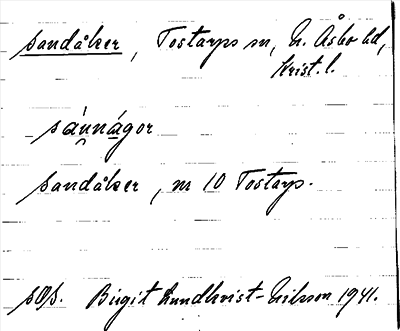 sandåker, Tostarps sn, N. Åsbo hd,
Krist. l.
sánnágor
sandåker, nr 10 Tostarp.
sOs. Birgit Lundkvist-Nilsson 1941.